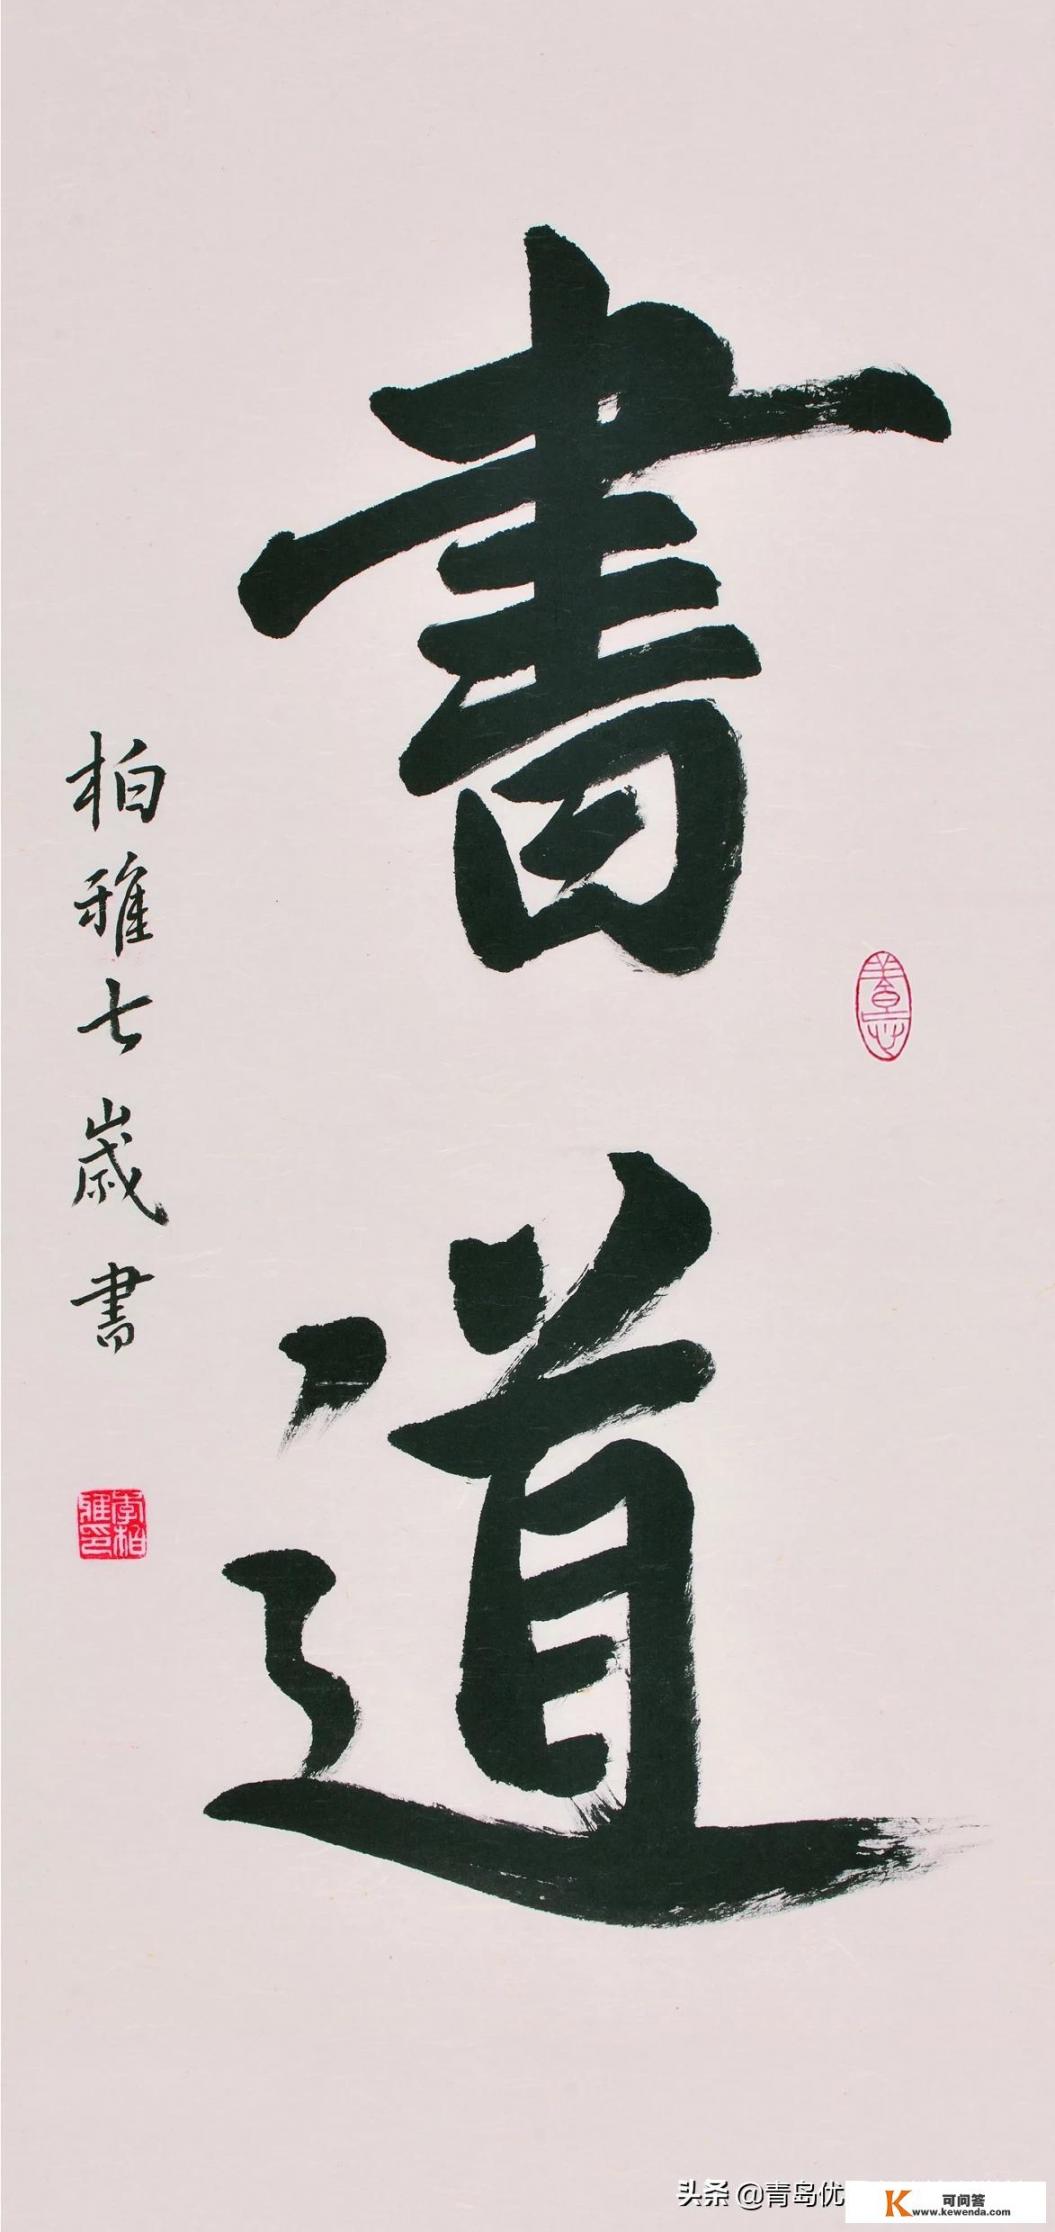 書道
柏雅七歲書
李柏雅印
头条 @青岛优
K 可问答
www.kewenda.com